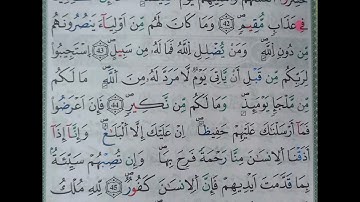 فِي عَذَابٍ مُّقِيمٍ وَمَا كَانَ لَهُم مِّنَ اَوْلِيَآءَ يَنصُرُونَهُم
مِّن دُونِ اِ۬للَّهِ وَمَنْ يُّضْلِلِ اِ۬للَّهُ فَمَا لَهُۥ مِن سَبِيلٍ 43 اِ۪سْتَجِيبُواْ
لِرَبِّكُم مِّن قَبْلِ أَنْ يَّاتِيَ يَوْمٌ لَّا مَرَدَّ لَهُۥ مِنَ اَ۬للَّهِ مَا لَكُم
مِّن مَّلْجَإٍ يَوْمَئِذٍ وَمَا لَكُم مِّن نَّكِيرٍ 44 فَإِنَ اَعْرَضُواْ
فَمَآ أَرْسَلْنَٰكَ عَلَيْهِمْ حَفِيظًا إِنْ عَلَيْكَ إِلَّا اَ۬لْبَلَٰغُ وَإِنَّآ إِذَآ
أَذَقْنَا اَ۬لِانسَٰنَ مِنَّا رَحْمَةً فَرِحَ بِهَا وَإِن تُصِبْهُمْ سَيِّئَةٌۢ
بِمَا قَدَّمَتَ اَيْدِيهِمْ فَإِنَّ اَ۬لِانسَٰنَ كَفُورٌ 45 لِّلهِ مُلْكُ